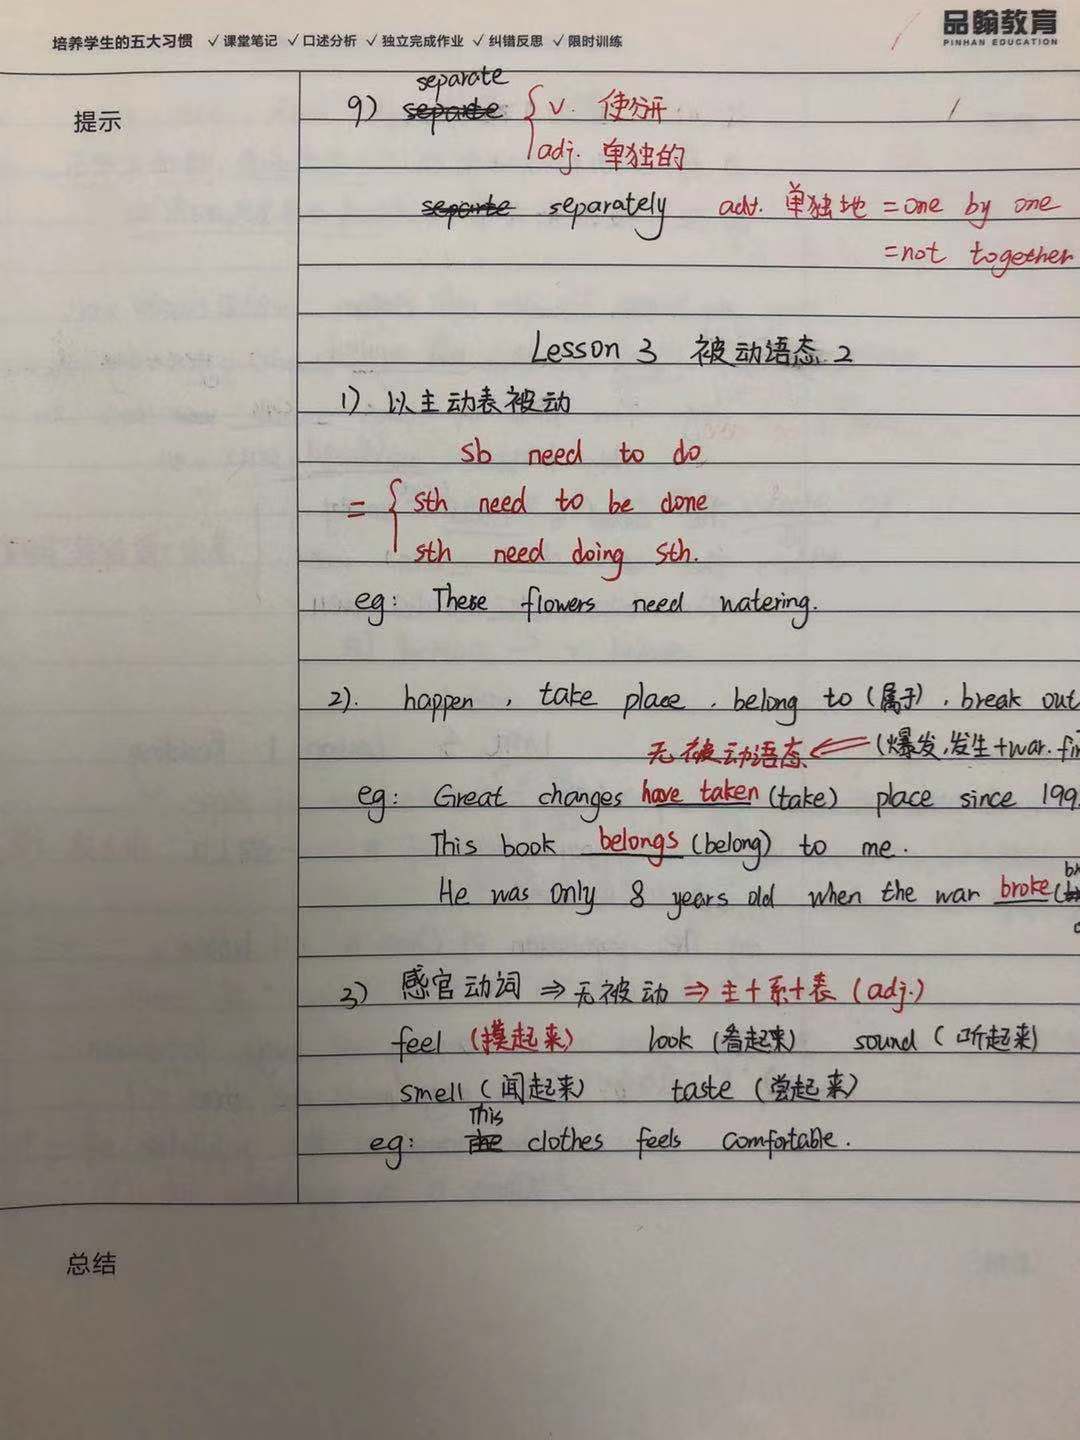 培养学生的五大习惯 √课堂笔记 √口述分析 √独立完成作业 √纠错反思 √限时训练
品翰教育
PINHAN EDUCATION
提示
separate
9) { v. 使分开
adj. 单独的
separately adv. 单独地 = one by one
= not together
Lesson 3 被动语态 2
1). 以主动表被动
sb need to do
= { sth need to be done
sth need doing sth.
eg: These flowers need watering.
2). happen, take place, belong to (属于), break out
无被动语态 ⇐ (爆发,发生+war.
eg: Great changes have taken (take) place since 199
This book belongs (belong) to me.
He was only 8 years old when the war broke (
3) 感官动词 ⇒ 无被动 ⇒ 主+系+表 (adj.)
feel (摸起来) look (看起来) sound (听起来)
smell (闻起来) taste (尝起来)
This
eg: clothes feels comfortable.
总结